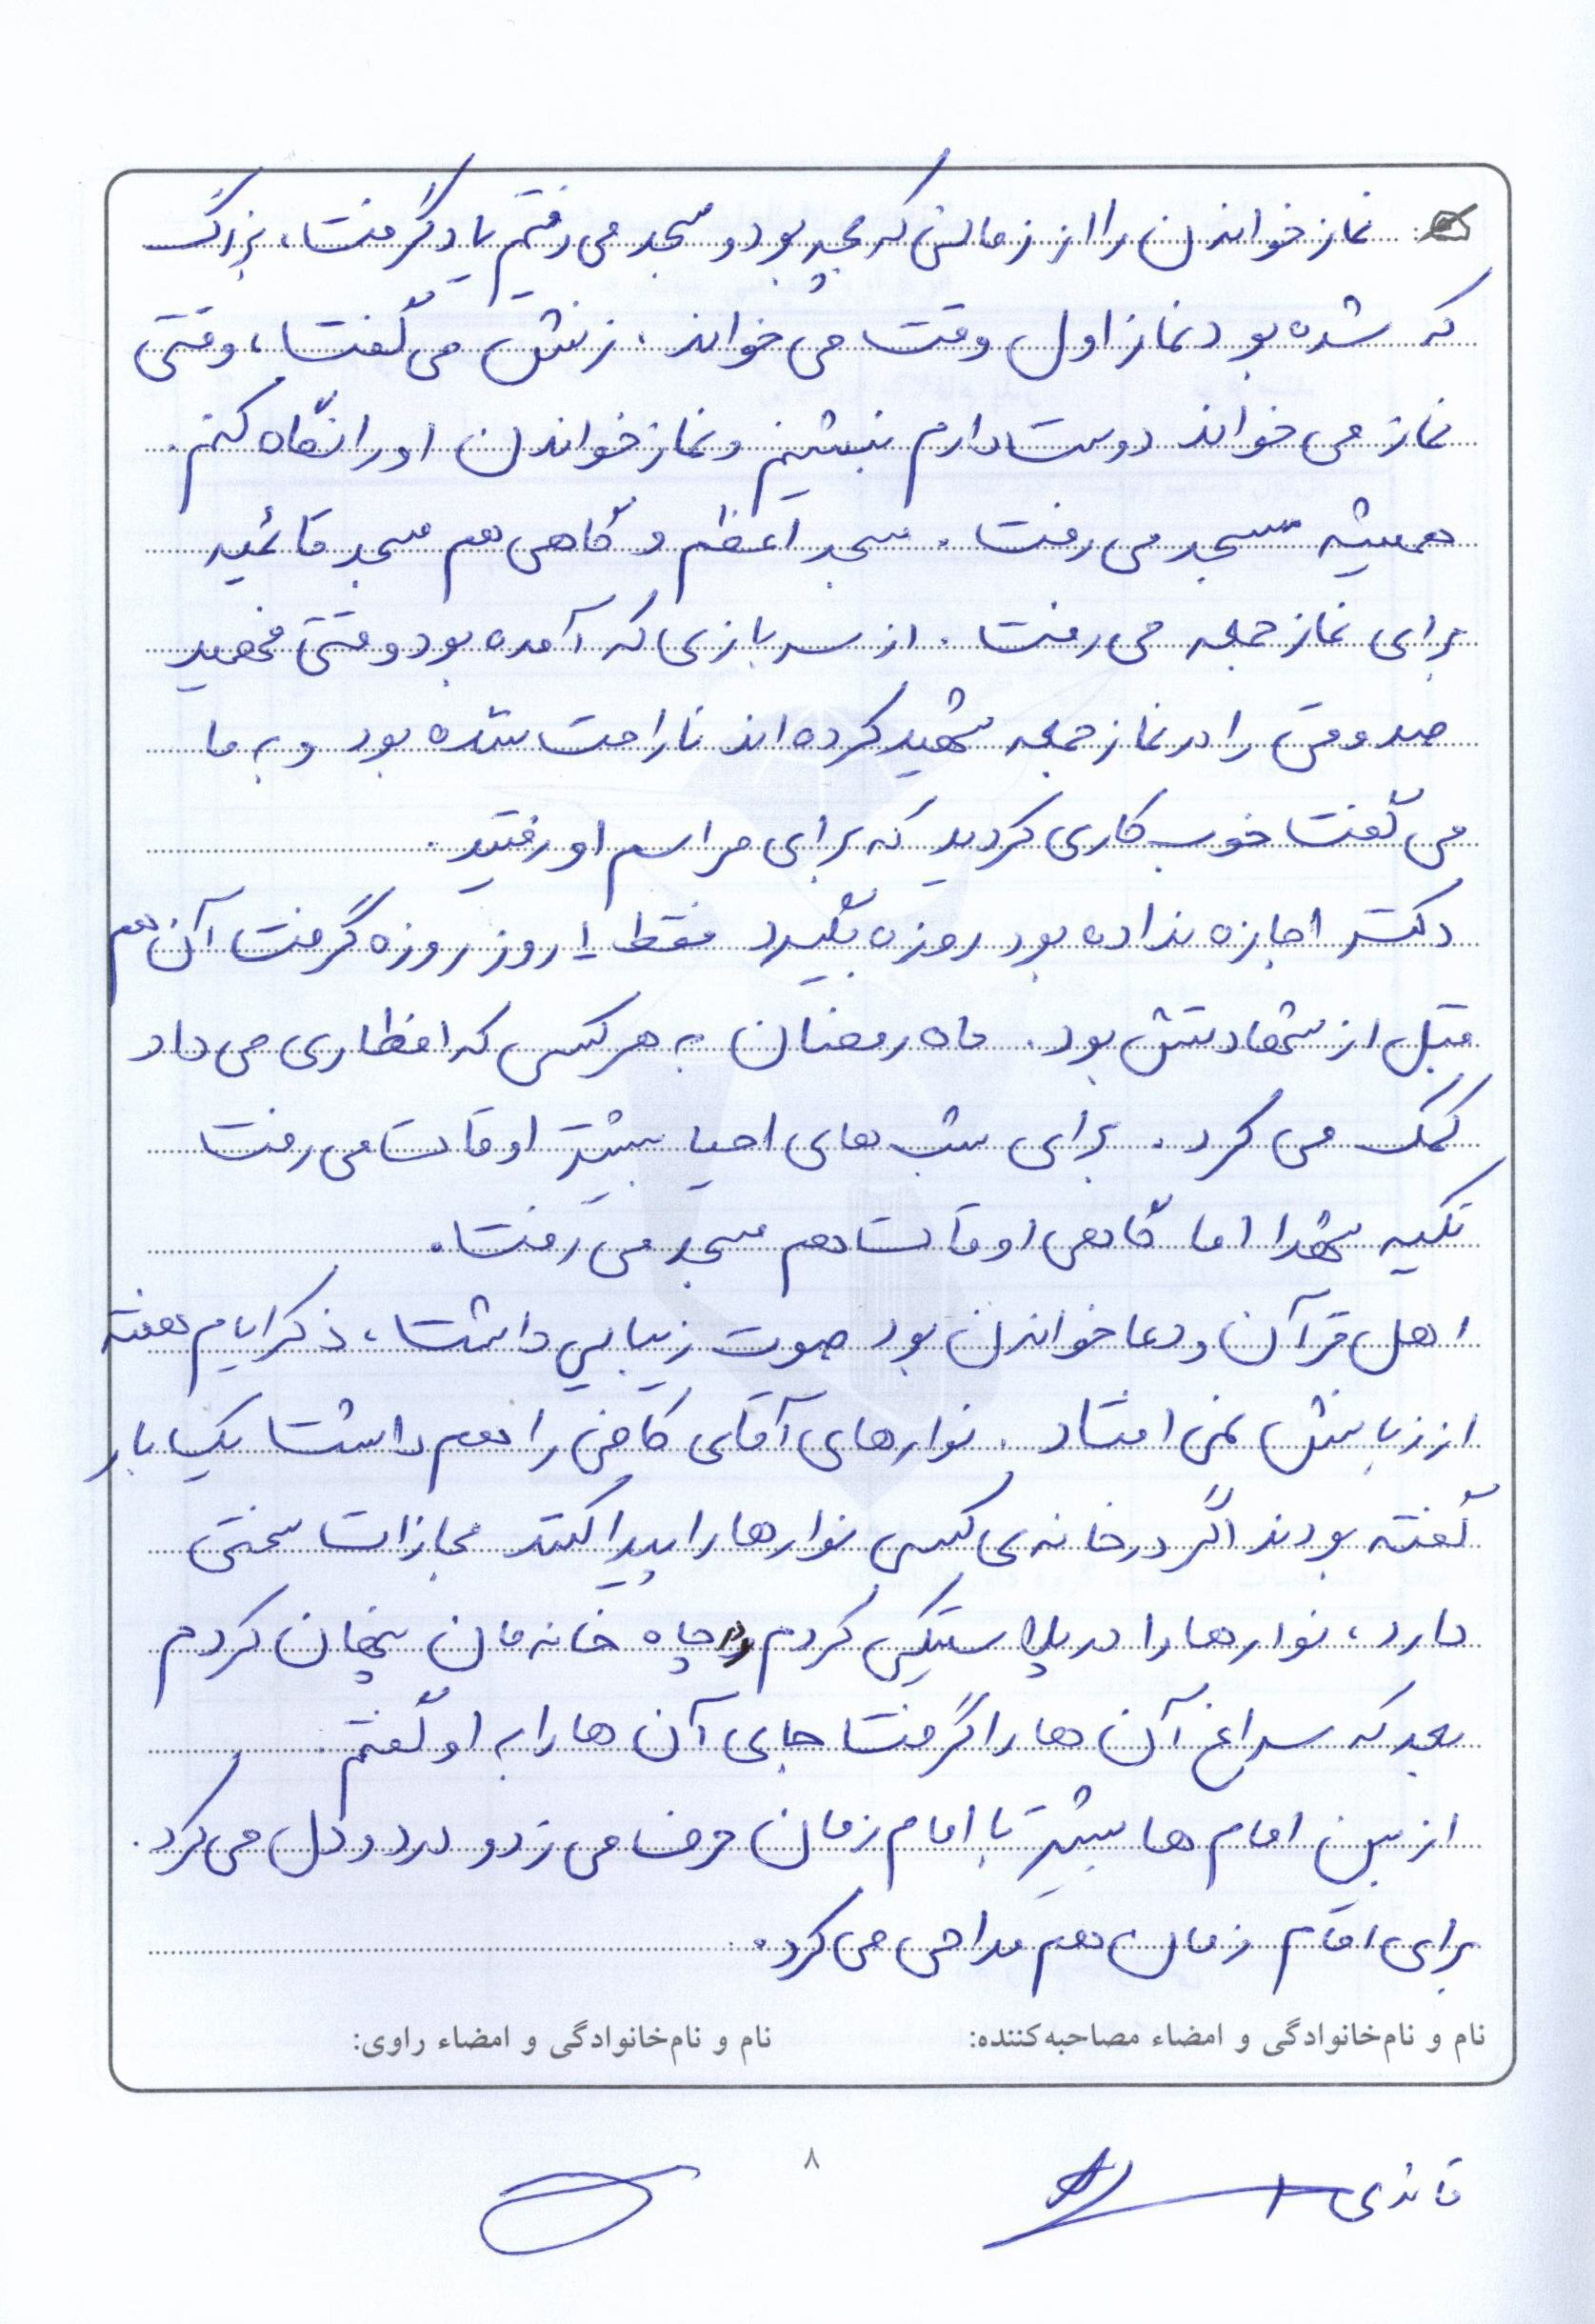 نماز خواندن را از زمانی که بچه بود و مسجد می رفتیم یاد گرفت، بزرگ
که شده بود نماز اول وقت می خواند. زنش می گفت، وقتی
نماز می خواند دوست دارم بنشینم و نماز خواندن او را نگاه کنم.
همیشه مسجد می رفت. مسجد اعظم و گاهی هم مسجد قائمیه
برای نماز جمعه می رفت. از سربازی که آمده بود وقتی فهمید
صدوقی را در نماز جمعه شهید کرده اند ناراحت شده بود و به ما
می گفت خوب کاری کردید که برای مراسم او رفتید.
دکتر اجازه نداده بود روزه بگیرد فقط ۱ روز روزه گرفت آن هم
قبل از شهادتش بود. ماه رمضان به هر کسی که افطاری می داد
کمک می کرد. برای شب های احیا بیشتر اوقات می رفت
تکیه شهدا اما گاهی اوقات هم مسجد می رفت.
اهل قرآن و دعا خواندن بود صوت زیبایی داشت، ذکر ایام هفته
از زبانش نمی افتاد. نوارهای آقای کافی را هم داشت یک بار
گفته بودند اگر در خانه ی کسی نوارها را پیدا کنند مجازات سختی
دارد، نوارها را در پلاستیکی کردم در چاه خانه مان پنهان کردم
بعد که سراغ آن ها را گرفت جای آن ها را به او گفتم.
از بین امام ها بیشتر با امام زمان حرف می زد و درد و دل می کرد.
برای امام زمان هم مداحی می کرد.
نام و نام‌خانوادگی و امضاء مصاحبه‌کننده: نام و نام‌خانوادگی و امضاء راوی:
۸